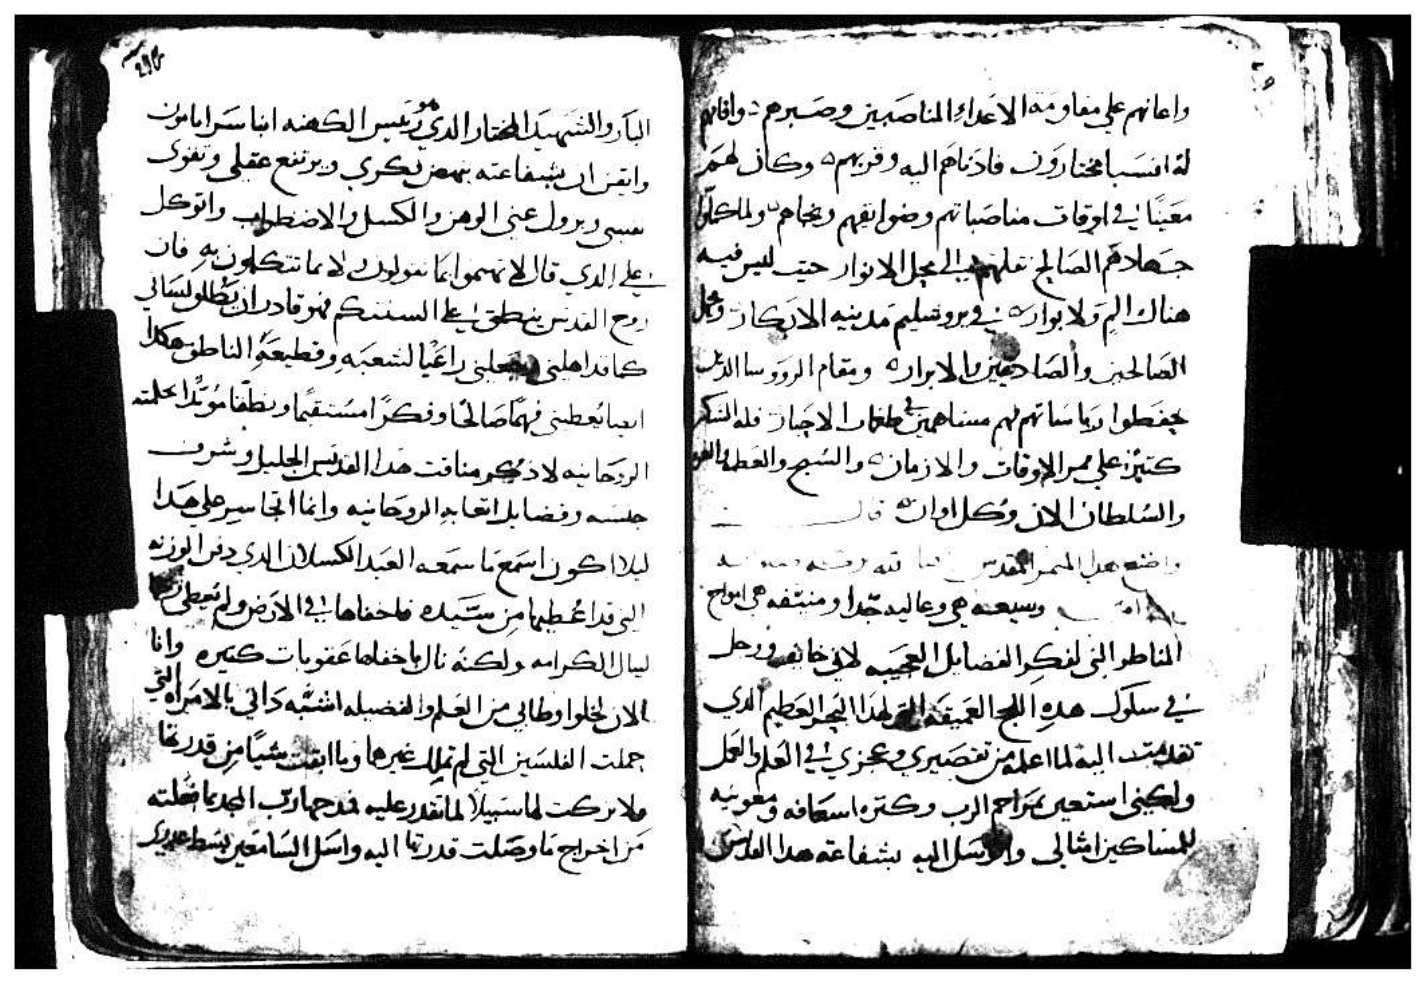 واعانهم علي مقاومة الاعداء المناصبين وصبرهم وافاهم
له انسبا مختارون فادناهم اليه وقربهم وكان لهم
معينًا في اوقات مناصباتهم وضوايقهم ونجاهم ولما كملوا
جهادهم الصالح نقلهم الي محل الانوار حيث ليس فيه
هناك الم ولا بوار في يروشليم مدينه الابكار ومحل
الصالحين والصادقين والابرار ومقام الرووسا الدين
يحفطوا رياساتهم لهم مساهمين في طغمات الاخيار فله الشكر
كتيرًا علي ممر الاوقات والازمان والسبح والعطمه والعز
والسلطان الان وكل اوان قال
واضع هدا الميمر المقدس
وسيعه هي وعاليه جدا ومنيفه هي امواج
المناطر التي لفكر الفضايل العجيبه لاني خايف ووجل
في سلوك هده اللجج العميقه التي لهدا البحر العطيم الدي
تقدمت اليه لما اعلمه من تقصيري وعجزي في العلم والعمل
ولكني استعين بمراحم الرب وكتره اسعافه ومعونته
للمساكين امتالي واتوسل اليه بشفاعة هدا القديس
البار والشهيد المختار الدي هو رييس الكهنه انبا سرابامون
واتقن ان بشفاعته ينهض فكري ويرتفع عقلي وتقوى
نفسي ويزول عني الوهن والكسل والاضطراب واتوكل
علي الدي قال لا تهتموا بما تقولون ولا بما تتكلمون به فان
روح القدس ينطق علي السنتكم فهو قادر ان يطلق لساني
كما قد اهلني وجعلني راعيًا لشعبه وقطيعه الناطق هكدا
ايضا يعطيني فهمًا صالحًا وفكرًا مستقيمًا ونطقًا مويدًا بحكمته
الروحانيه لادكر مناقب هدا القديس الجليل وشرف
جنسه وفضايل اتعابه الروحانيه وانما اتجاسر علي هدا
ليلا اكون اسمع ما سمعه العبد الكسلان الدي دفن الوزنه
التي قد اعطيها من سيده فاخفاها في الارض ولم يعطي ربحها
لينال الكرامه ولكنه نال باخفاها عقوبات كتيره وانا
الان لخلوا وطابي من العلم والفضيله اشبه داتي بالامراه التي
حملت الفلسين التي لم تملك غيرها وما ابقت شيًا من قدرتها
ولا تركت لها سبيلا لما تقدر عليه فمدحها رب المجد بما فعلته
من اخراج ما وصلت قدرتها اليه واسل السامعين بسط عدري